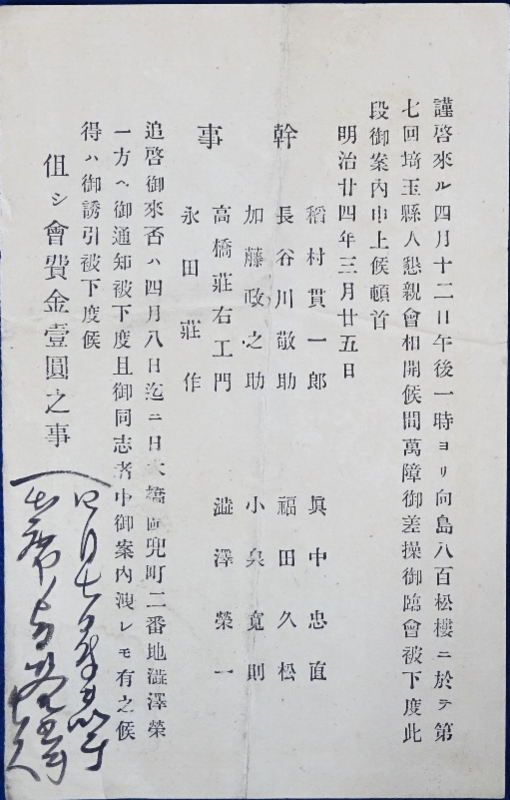 謹啓來ル四月十二日午後一時ヨリ向島八百松樓ニ於テ第
七回埼玉縣人懇親會相開候間萬障御差操御臨會被下度此
段御案內申上候頓首
明治廿四年三月廿五日
幹事
稻村貫一郎 眞中忠直
長谷川敬助 福田久松
加藤政之助 小泉寬則
高橋莊右エ門 澁澤榮一
永田莊作
追啓御來否ハ四月八日迄ニ日本橋區兜町二番地澁澤榮
一方ヘ御通知被下度且御同志者中御案內洩レモ有之候
得ハ御誘引被下度候
伹シ會費金壹圓之事